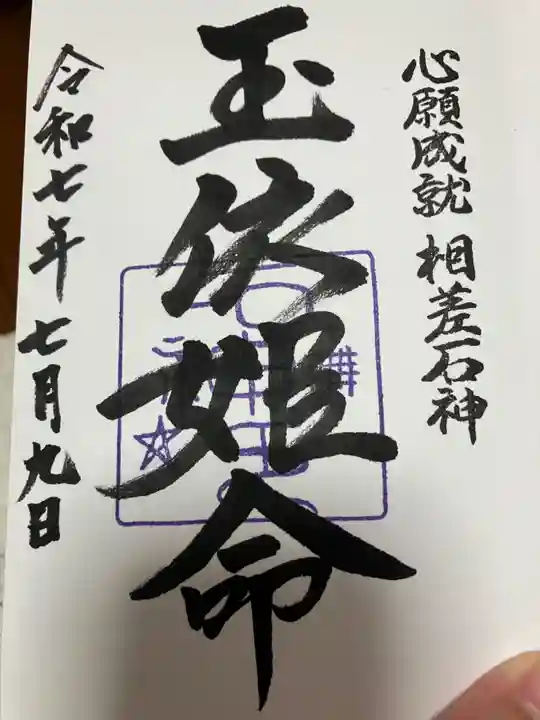 心願成就 相差石神
玉依姫命
令和七年七月九日